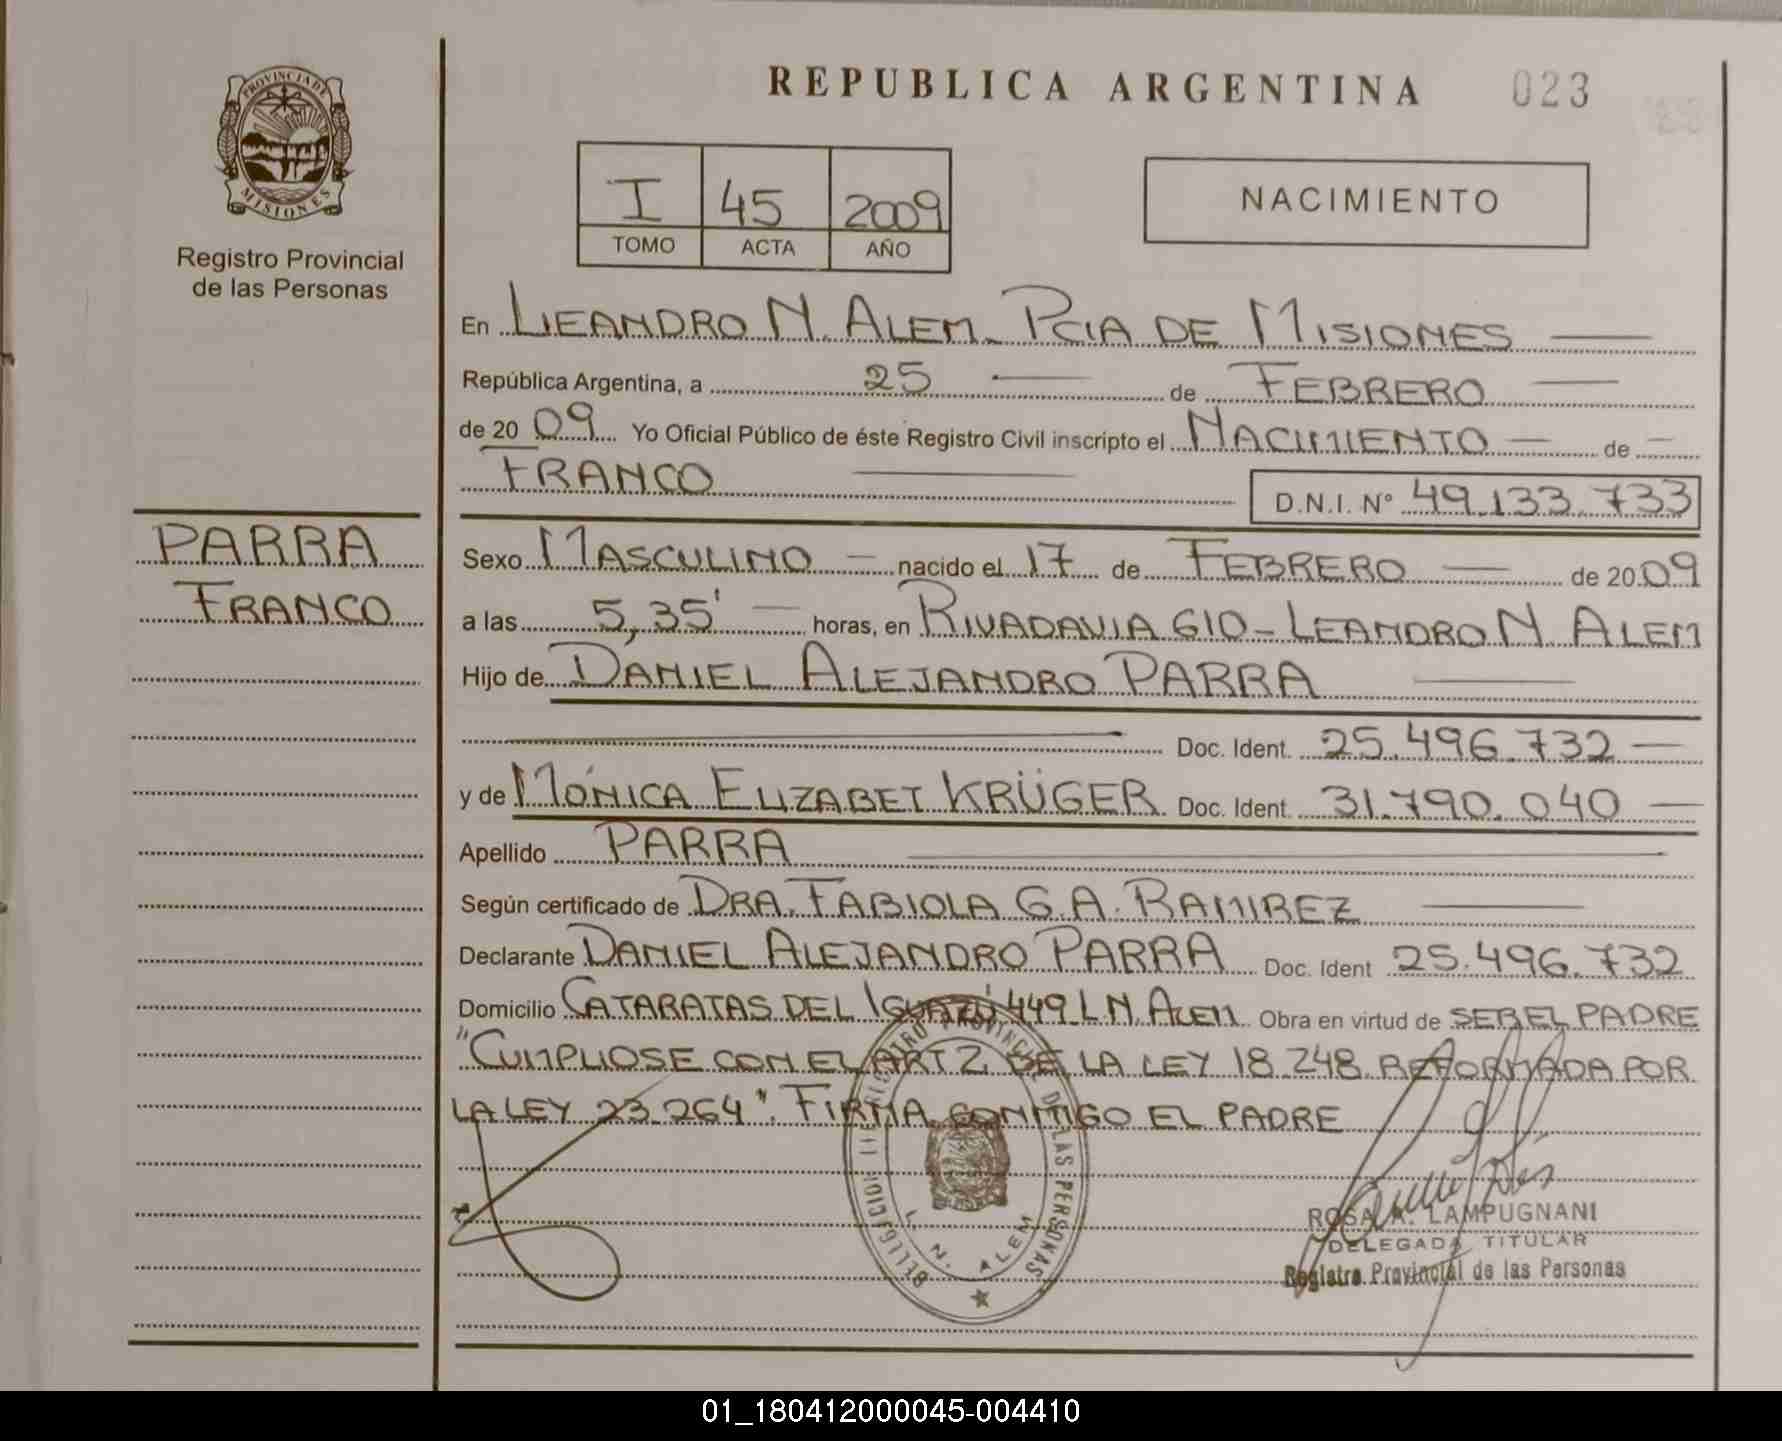 REPUBLICA ARGENTINA 023
PROVINCIA DE
MISIONES
Registro Provincial
de las Personas
I 45 2009
TOMO ACTA AÑO
NACIMIENTO
En LEANDRO N. ALEM_ PCIA DE MISIONES
República Argentina, a 25 de FEBRERO
de 20 09 Yo Oficial Público de éste Registro Civil inscripto el NACIMIENTO de
FRANCO D.N.I. Nº 49.133.733
PARRA
FRANCO
Sexo MASCULINO nacido el 17 de FEBRERO de 20 09
a las 5,35' horas, en RIVADAVIA 610 - LEANDRO N. ALEM
Hijo de DANIEL ALEJANDRO PARRA
Doc. Ident. 25.496.732
y de MÓNICA ELIZABET KRÜGER Doc. Ident. 31.790.040
Apellido PARRA
Según certificado de DRA. FABIOLA G.A. RAMIREZ
Declarante DANIEL ALEJANDRO PARRA Doc. Ident 25.496.732
Domicilio CATARATAS DEL IGUAZÚ 449 L.N. ALEM Obra en virtud de SER EL PADRE
"CUMPLIOSE CON EL ART 2 DE LA LEY 18.248 REFORMADA POR
LA LEY 23.264". FIRMA CONMIGO EL PADRE
REGISTRO PROVINCIAL DE LAS PERSONAS
L. N. ALEM
ROSA A. LAMPUGNANI
DELEGADA TITULAR
Registro Provincial de las Personas
01_180412000045-004410